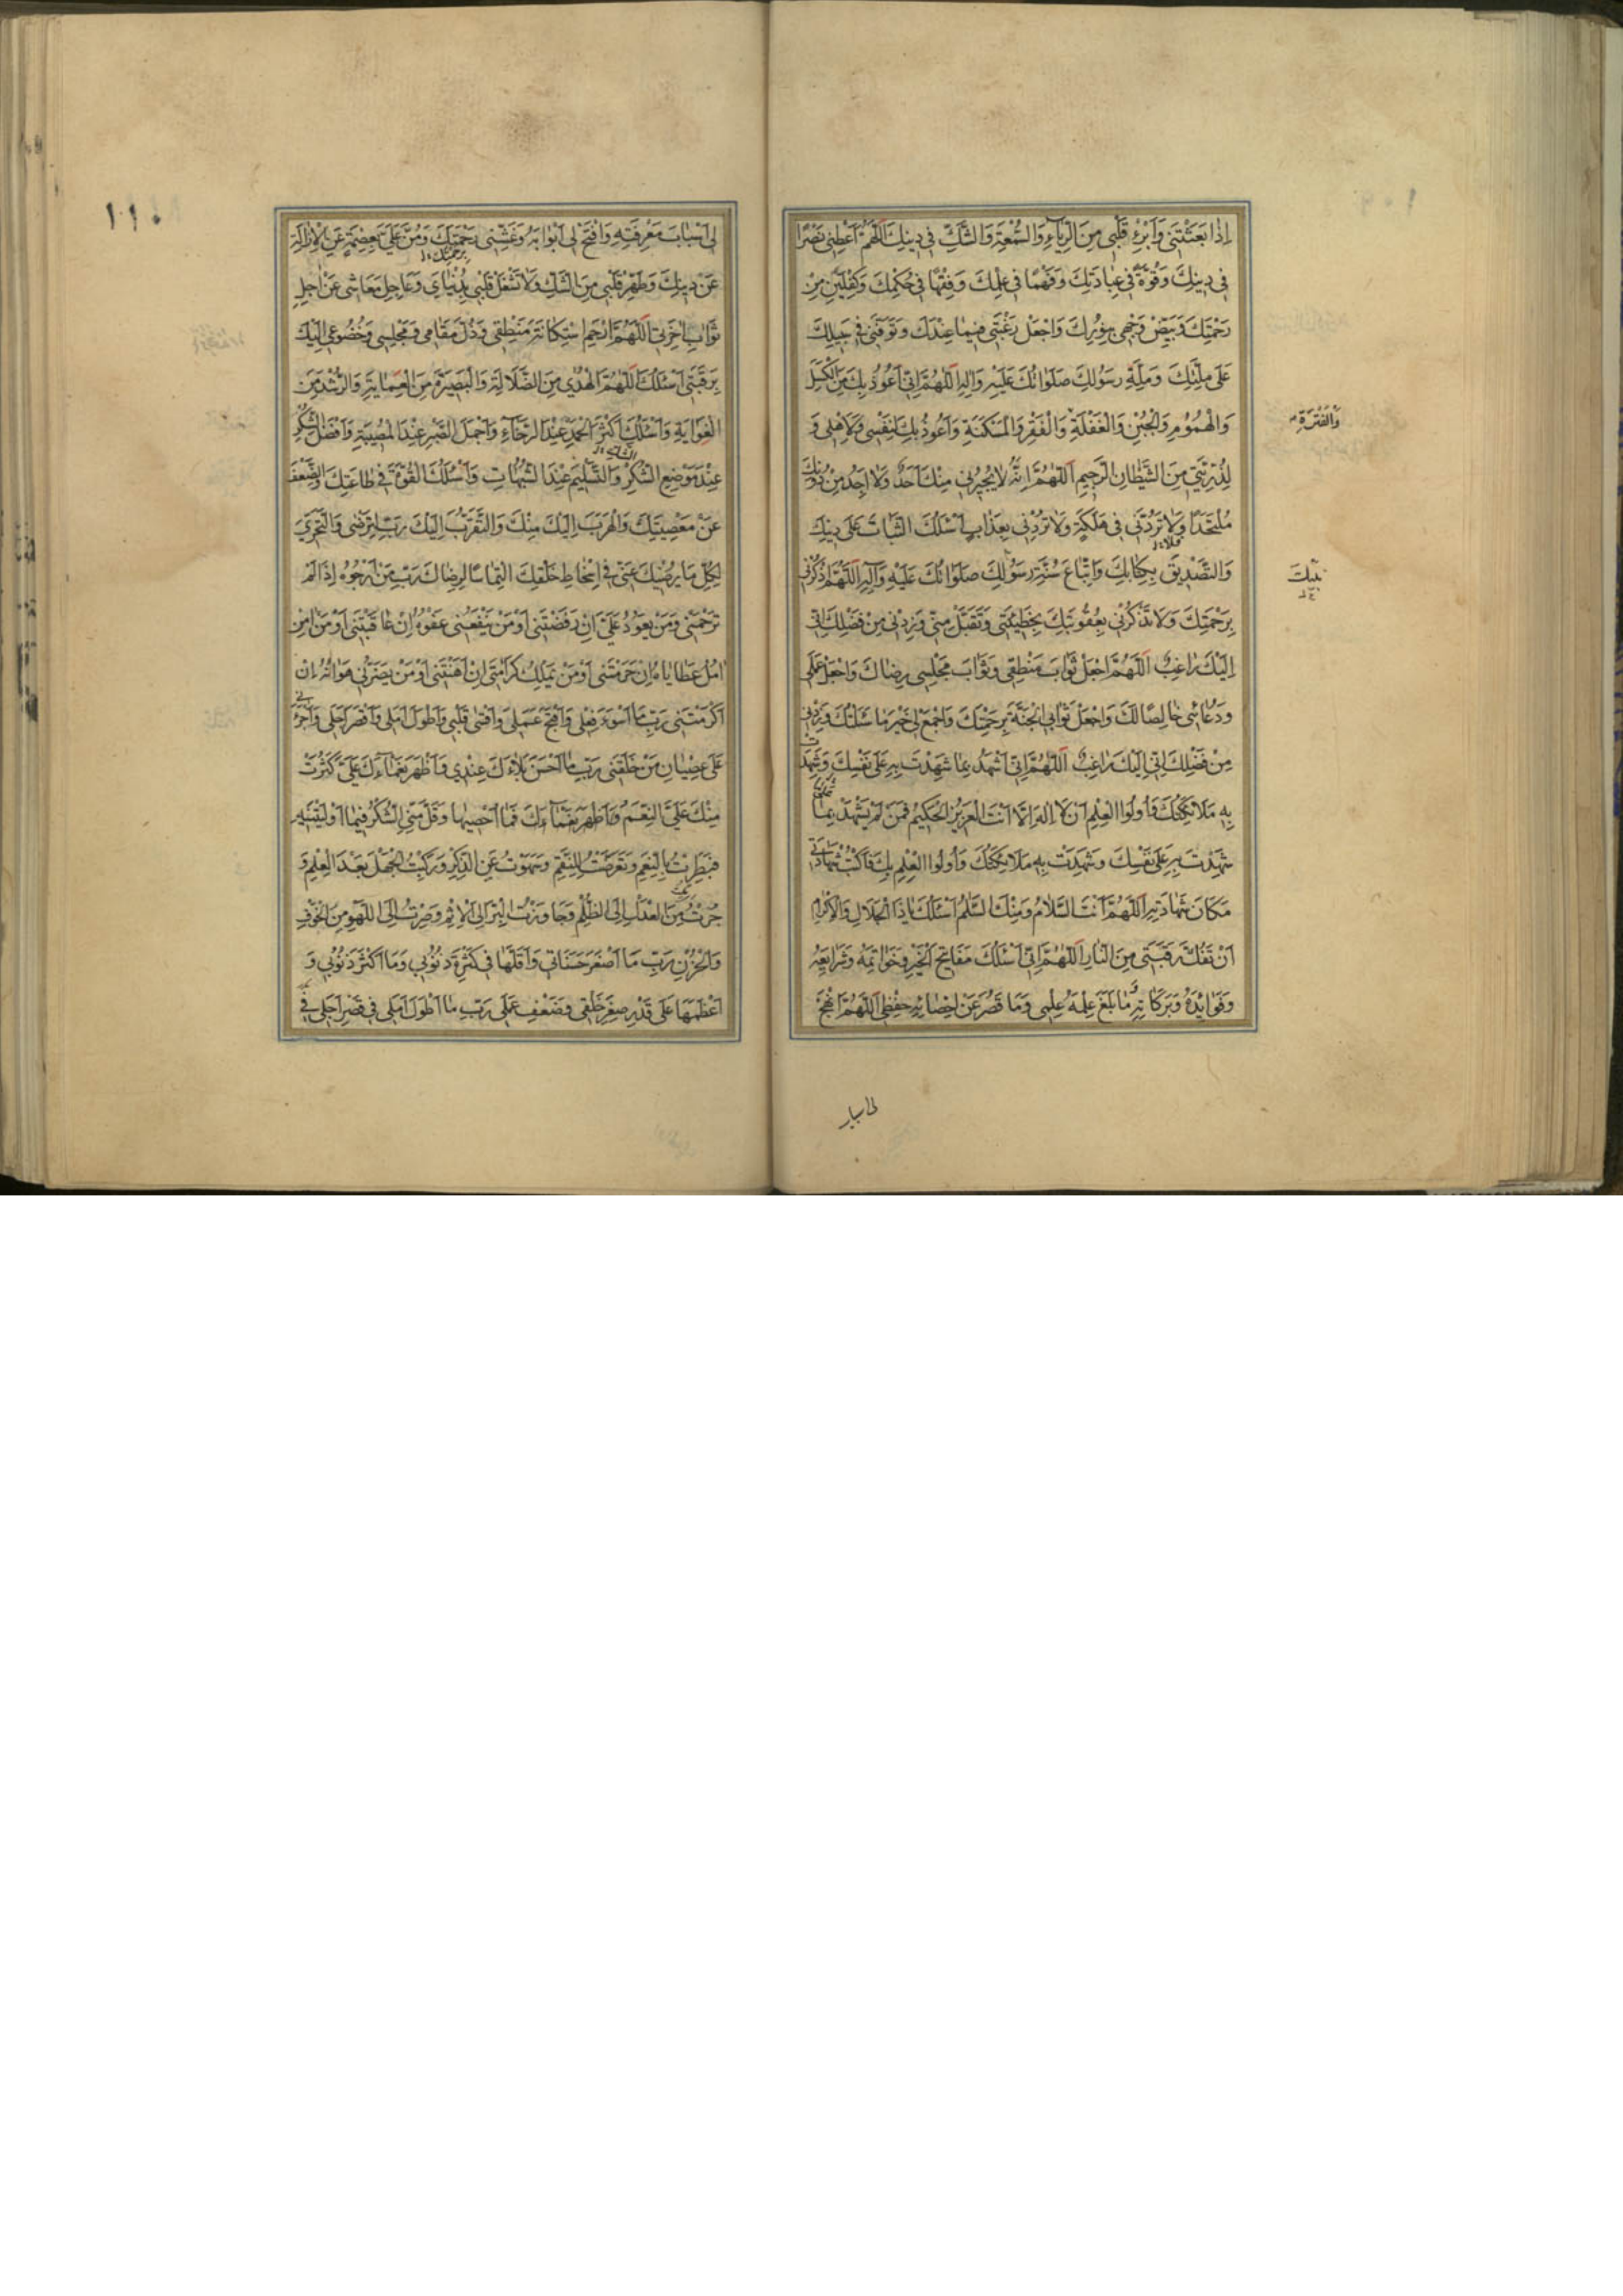 إِذَا بَعَثْتَنِي وَأَبْرِءْ قَلْبِي مِنَ الرِّيَآءِ وَالسُّمْعَةِ وَالشَّكِّ فِي دِينِكَ اَللّهُمَّ اَعْطِنِي نَصْرًا
فِي دِينِكَ وَقُوَّةً فِي عِبَادَتِكَ وَفَهْمًا فِي عِلْمِكَ وَفِقْهًا فِي حُكْمِكَ وَكِفْلَيْنِ مِنْ
رَحْمَتِكَ وَبَيِّضْ وَجْهِي بِنُورِكَ وَاجْعَلْ رَغْبَتِي فِيمَا عِنْدَكَ وَتَوَفَّنِي فِي سَبِيلِكَ
عَلَى مِلَّتِكَ وَمِلَّةِ رَسُولِكَ صَلَوَاتُكَ عَلَيْهِ وَالِهِ اَللّهُمَّ اِنِّي اَعُوذُ بِكَ مِنَ الْكَسَلِ
وَالْهُمُومِ وَالْجُبْنِ وَالْغَفْلَةِ وَالْفَقْرِ وَالْمَسْكَنَةِ وَاَعُوذُ بِكَ لِنَفْسِي وَلِاَهْلِي وَ
وَالْفَتْرَةِ
لِذُرِّيَّتِي مِنَ الشَّيْطَانِ الرَّجِيمِ اَللّهُمَّ اِنَّهُ لَا يُجِيرُنِي مِنْكَ اَحَدٌ وَلَا اَجِدُ مِنْ دُونِكَ
مُلْتَحَدًا وَلَا تَرُدَّنِي فِي هَلَكَةٍ وَلَا تُرِدْنِي بِعَذَابٍ اَسْئَلُكَ الثَّبَاتَ عَلَى دِينِكَ
وَالتَّصْدِيقَ بِكِتَابِكَ وَاتِّبَاعَ سُنَّةِ رَسُولِكَ صَلَوَاتُكَ عَلَيْهِ وَآلِهِ اَللّهُمَّ اذْكُرْنِي
نَبِيِّكَ
بِرَحْمَتِكَ وَلَا تَذْكُرْنِي بِعُقُوبَتِكَ بِخَطِيئَتِي وَتَقَبَّلْ مِنِّي وَزِدْنِي مِنْ فَضْلِكَ اِنِّي
اِلَيْكَ رَاغِبٌ اَللّهُمَّ اجْعَلْ ثَوَابَ مَنْطِقِي وَثَوَابَ مَجْلِسِي رِضَاكَ وَاجْعَلْ عَمَلِي
وَدُعَائِي خَالِصًا لَكَ وَاجْعَلْ ثَوَابِيَ الْجَنَّةَ بِرَحْمَتِكَ وَاجْمَعْ لِي خَيْرَ مَا سَئَلْتُكَ وَزِدْنِي
مِنْ فَضْلِكَ اِنِّي اِلَيْكَ رَاغِبٌ اَللّهُمَّ اِنِّي اَشْهَدُ بِمَا شَهِدْتَ بِهِ عَلَى نَفْسِكَ وَشَهِدَتْ
بِهِ مَلَائِكَتُكَ وَاُولُوا الْعِلْمِ اَنْ لَا اِلَهَ اِلَّا اَنْتَ الْعَزِيزُ الْحَكِيمُ فَمَنْ لَمْ يَشْهَدْ بِمَا
شَهِدْتَ بِهِ عَلَى نَفْسِكَ وَشَهِدَتْ بِهِ مَلَائِكَتُكَ وَاُولُوا الْعِلْمِ بِكَ فَاكْتُبْ شَهَادَتِي
مَكَانَ شَهَادَتِهِ اَللّهُمَّ اَنْتَ السَّلَامُ وَمِنْكَ السَّلَمُ اَسْئَلُكَ يَا ذَا الْجَلَالِ وَالْاِكْرَامِ
اَنْ تَفُكَّ رَقَبَتِي مِنَ النَّارِ اَللّهُمَّ اِنِّي اَسْئَلُكَ مَفَاتِحَ الْخَيْرِ وَخَوَاتِمَهُ وَشَرَايِعَهُ
وَفَوَايِدَهُ وَبَرَكَاتِهِ وَمَا بَلَغَ عِلْمَهُ عِلْمِي وَمَا قَصُرَ عَنْ اِحْصَائِهِ حِفْظِي اَللّهُمَّ انْهَجْ
١١٠
لِي اَسْبَابَ مَعْرِفَتِهِ وَافْتَحْ لِي اَبْوَابَهُ وَغَشِّنِي بِرَحْمَتِكَ وَمُنَّ عَلَيَّ بِعِصْمَةٍ عَنِ الْاِزَالَةِ
عَنْ دِينِكَ وَطَهِّرْ قَلْبِي مِنَ الشَّكِّ وَلَا تَشْغَلْ قَلْبِي بِدُنْيَايَ وَعَاجِلِ مَعَاشِي عَنْ اٰجِلِ
ثَوَابِ اٰخِرَتِي اَللّهُمَّ ارْحَمِ اسْتِكَانَةَ مَنْطِقِي وَذُلَّ مَقَامِي وَمَجْلِسِي وَخُضُوعِي اِلَيْكَ
بِرَقَبَتِي اَسْئَلُكَ اَللّهُمَّ الْهُدٰى مِنَ الضَّلَالَةِ وَالْبَصِيرَةَ مِنَ الْعَمَايَةِ وَالرُّشْدَ مِنَ
الْغَوَايَةِ وَاَسْئَلُكَ اَكْثَرَ الْحَمْدِ عِنْدَ الرَّخَآءِ وَاَجْمَلَ الصَّبْرِ عِنْدَ الْمُصِيبَةِ وَاَفْضَلَ الشُّكْرِ
عِنْدَ مَوْضِعِ الشُّكْرِ وَالتَّسْلِيمَ عِنْدَ الشُّبُهَاتِ وَاَسْئَلُكَ الْقُوَّةَ فِي طَاعَتِكَ وَالضَّعْفَ
عَنْ مَعْصِيَتِكَ وَالْهَرَبَ اِلَيْكَ مِنْكَ وَالتَّقَرُّبَ اِلَيْكَ رَبِّ لِتَرْضٰى وَالتَّحَرِّيَ
لِكُلِّ مَا يُرْضِيكَ عَنِّي فِي اِسْخَاطِ خَلْقِكَ الْتِمَاسًا لِرِضَاكَ رَبِّ مَنْ اَرْجُوهُ اِذَا لَمْ
تَرْحَمْنِي وَمَنْ يَعُودُ عَلَيَّ اِنْ رَفَضْتَنِي اَوْ مَنْ يَنْفَعُنِي عَفْوُهُ اِنْ عَاقَبْتَنِي اَوْ مَنْ
اٰمُلُ عَطَايَاهُ اِنْ حَرَمْتَنِي اَوْ مَنْ يَمْلِكُ كَرَامَتِي اِنْ اَهَنْتَنِي اَوْ مَنْ يَضُرُّنِي هَوَانُهُ اِنْ
اَكْرَمْتَنِي رَبِّ مَا اَسْوَءَ فِعْلِي وَاَقْبَحَ عَمَلِي وَاَقْسٰى قَلْبِي وَاَطْوَلَ اَمَلِي وَاَقْصَرَ اَجَلِي وَاَجْرَءَنِي
عَلَى عِصْيَانِ مَنْ خَلَقَنِي رَبِّ مَا اَحْسَنَ بَلَاءَكَ عِنْدِي وَاَظْهَرَ نَعْمَاءَكَ عَلَيَّ كَثُرَتْ
مِنْكَ عَلَيَّ النِّعَمُ وَاَظْهَرَ نَعْمَآءَكَ فَمَا اُحْصِيهَا وَقَلَّ مِنِّي الشُّكْرُ فِيمَا اَوْلَيْتَنِيهِ
فَبَطِرْتُ بِالنِّعَمِ وَتَعَرَّضْتُ لِلنِّقَمِ وَسَهَوْتُ عَنِ الذِّكْرِ وَرَكِبْتُ الْجَهْلَ بَعْدَ الْعِلْمِ وَ
جُزْتُ مِنَ الْعَدْلِ اِلَى الظُّلْمِ وَجَاوَزْتُ الْبِرَّ اِلَى الْاِثْمِ وَصِرْتُ اِلَى اللَّهْوِ مِنَ الْخَوْفِ
وَالْحُزْنِ رَبِّ مَا اَصْغَرَ حَسَنَاتِي وَاَقَلَّهَا فِي كَثْرَةِ ذُنُوبِي وَمَا اَكْثَرَ ذُنُوبِي وَ
اَعْظَمَهَا عَلَى قَدْرِ صِغَرِ خَلْقِي وَضَعْفِ عَمَلِي رَبِّ مَا اَطْوَلَ اَمَلِي فِي قِصَرِ اَجَلِي فِي